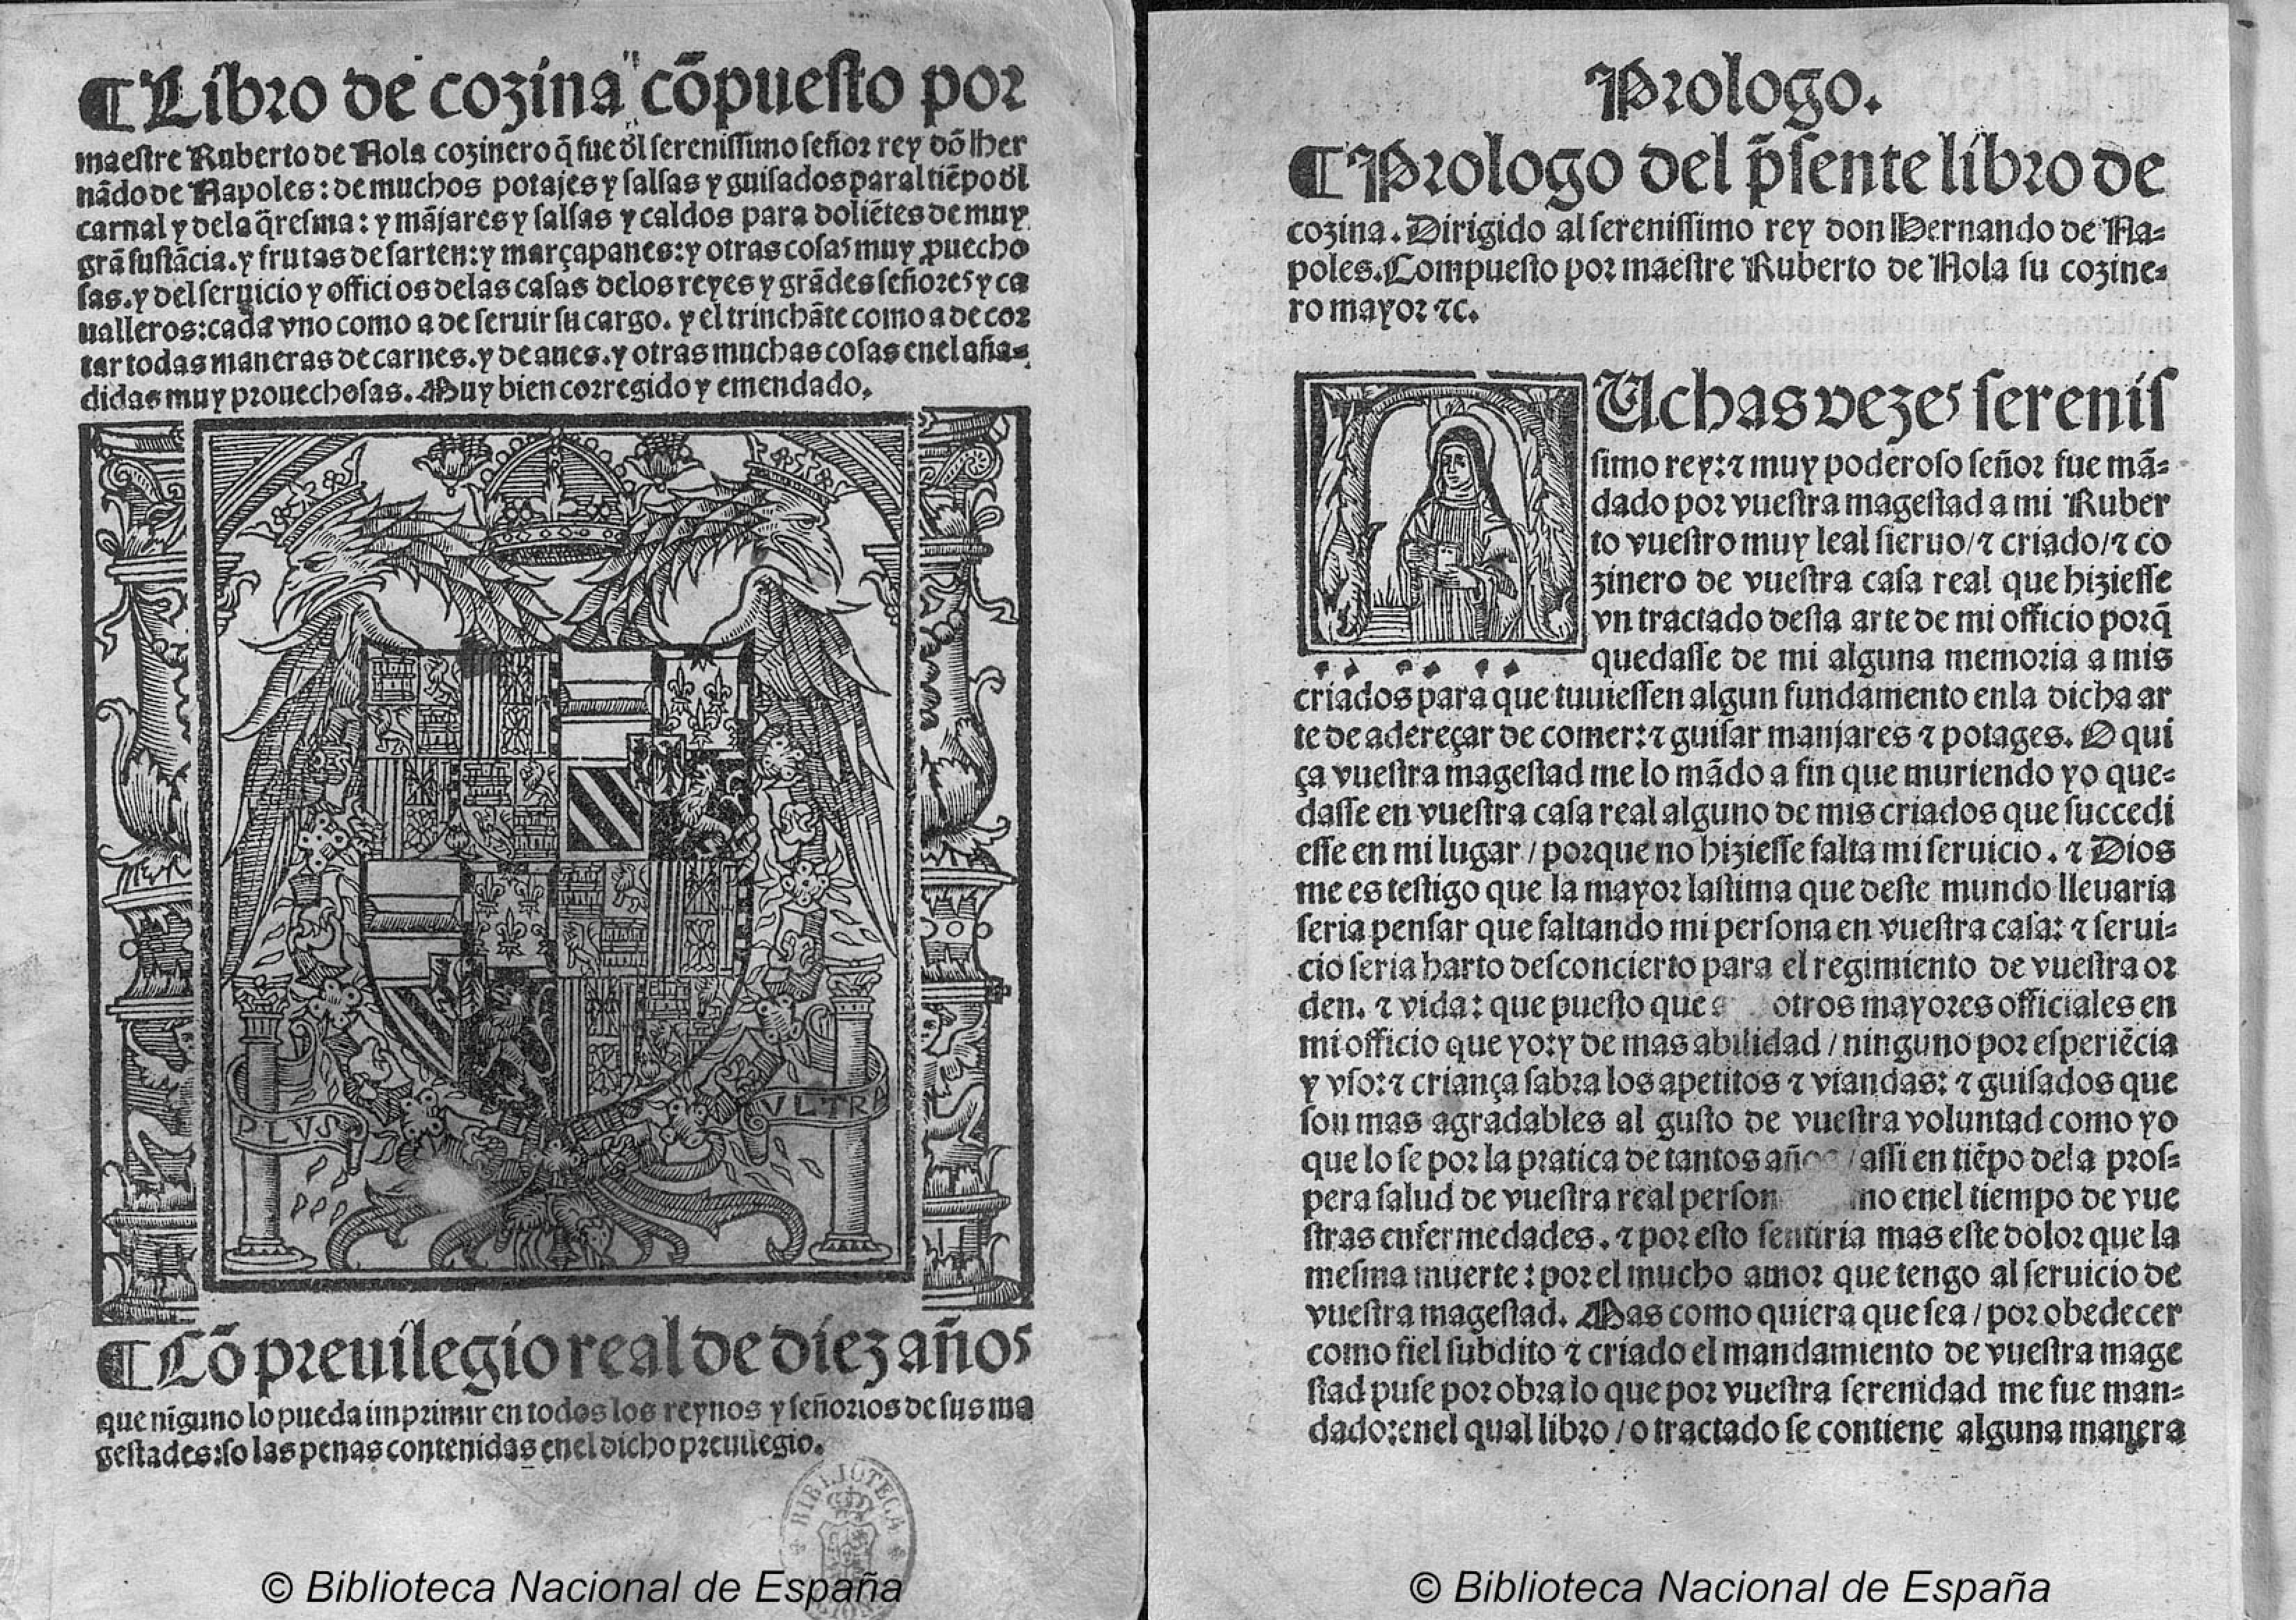 ¶ Libro de cozina cõpuesto por
maestre Ruberto de Nola cozinero q̃ fue d̃l serenissimo señor rey dõ Her
nãdo de Napoles: de muchos potajes y salsas y guisados paral tiẽpo d̃l
carnal y dela q̃resma: y mãjares y salsas y caldos para doliẽtes de muy
grã sustãcia. y frutas de sarten: y marçapanes: y otras cosas muy ꝓuecho
sas. y del seruicio y officios delas casas delos reyes y grãdes señores y ca
ualleros: cada vno como a de seruir su cargo. y el trinchãte como a de cor
tar todas maneras de carnes. y de aues. y otras muchas cosas enel aña-
didas muy prouechosas. Muy bien corregido y emendado.
PLVS
VLTRA
¶ Cõ preuilegio real de diez años
que niguno lo pueda imprimir en todos los reynos y señorios de sus ma
gestades: so las penas contenidas enel dicho preuilegio.
BIBLIOTECA
© Biblioteca Nacional de España
Prologo.
¶ Prologo del p̃sente libro de
cozina. Dirigido al serenissimo rey don Hernando de Na-
poles. Compuesto por maestre Ruberto de Nola su cozine-
ro mayor ⁊c.
Uchas vezes serenis
simo rey: ⁊ muy poderoso señor fue mã-
dado por vuestra magestad a mi Ruber
to vuestro muy leal sieruo/ ⁊ criado/ ⁊ co
zinero de vuestra casa real que hiziesse
vn tractado desta arte de mi officio porq̃
quedasse de mi alguna memoria a mis
criados para que tuuiessen algun fundamento enla dicha ar
te de adereçar de comer: ⁊ guisar manjares ⁊ potages. O qui
ça vuestra magestad me lo mãdo a fin que muriendo yo que-
dasse en vuestra casa real alguno de mis criados que succedi
esse en mi lugar / porque no hiziesse falta mi seruicio. ⁊ Dios
me es testigo que la mayor lastima que deste mundo lleuaria
seria pensar que faltando mi persona en vuestra casa: ⁊ serui-
cio seria harto desconcierto para el regimiento de vuestra or
den. ⁊ vida: que puesto que otros mayores officiales en
mi officio que yo: y de mas abilidad / ninguno por esperiẽcia
y vso: ⁊ criança sabra los apetitos ⁊ viandas: ⁊ guisados que
son mas agradables al gusto de vuestra voluntad como yo
que lo se por la pratica de tantos años / assi en tiẽpo dela pros-
pera salud de vuestra real enel tiempo de vue
stras enfermedades. ⁊ por esto sentiria mas este dolor que la
mesma muerte: por el mucho amor que tengo al seruicio de
vuestra magestad. Mas como quiera que sea / por obedecer
como fiel subdito ⁊ criado el mandamiento de vuestra mage
stad puse por obra lo que por vuestra serenidad me fue man-
dado: enel qual libro / o tractado se contiene alguna manera
© Biblioteca Nacional de España